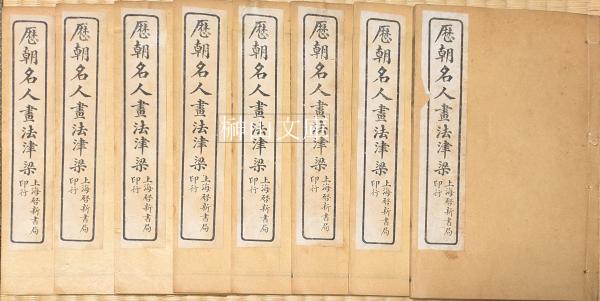 歷朝名人畫法津梁
上海啓新書局
印行
歷朝名人畫法津梁
上海啓新書局
印行
歷朝名人畫法津梁
上海啓新書局
印行
歷朝名人畫法津梁
上海啓新書局
印行
歷朝名人畫法津梁
上海啓新書局
印行
歷朝名人畫法津梁
上海啓新書局
印行
歷朝名人畫法津梁
上海啓新書局
印行
歷朝名人畫法津梁
上海啓新書局
印行
榊山文庫